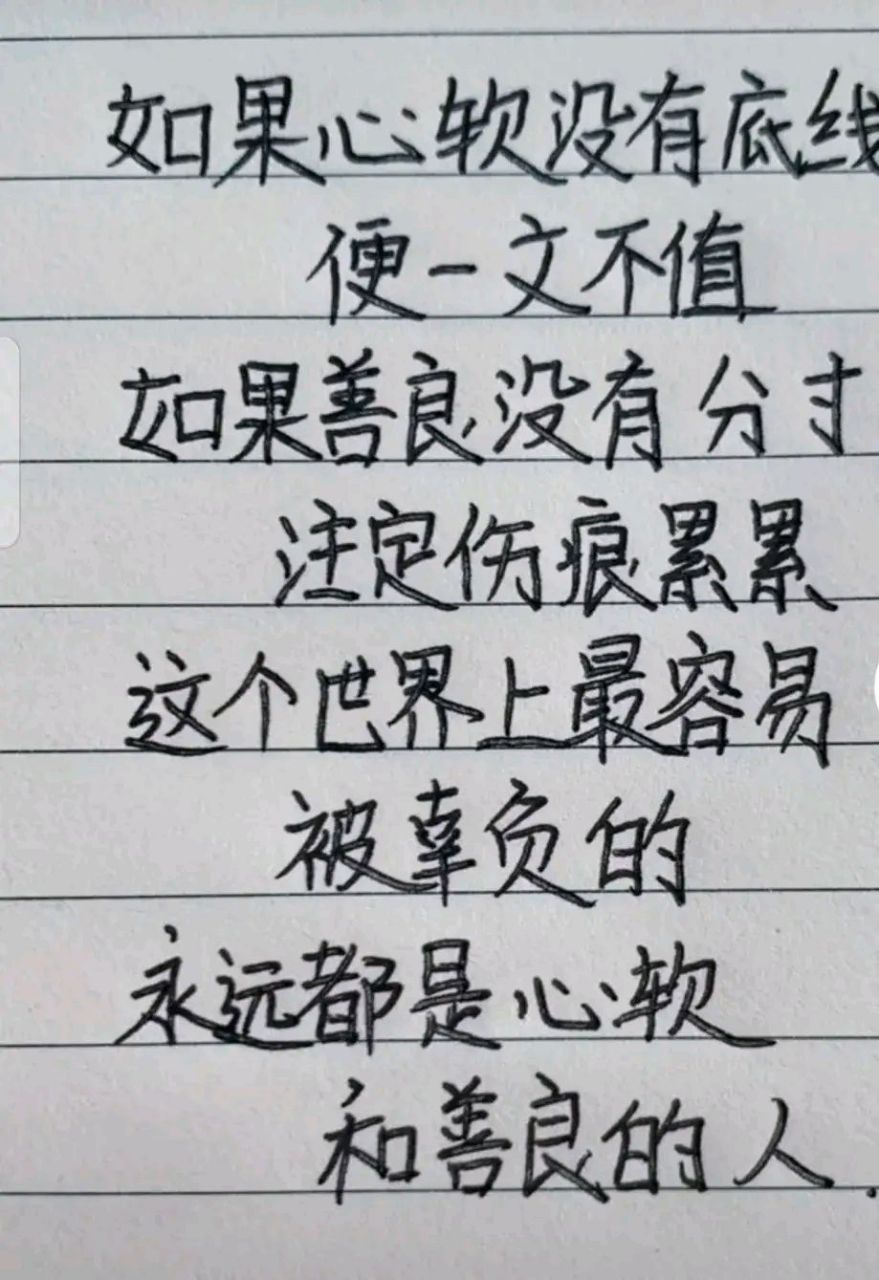 如果心软没有底线
便一文不值
如果善良没有分寸
注定伤痕累累
这个世界上最容易
被辜负的
永远都是心软
和善良的人.